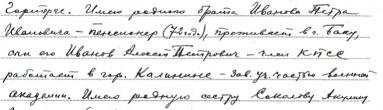 Имею родного брата Иванова Петра
Ивановича – пенсионер (72 года), проживает в г. Баку,
сын его Иванов Алексей Петрович – член КПСС
работает в гор. Калинине – зав. уч. частью военной
академии. Имею родную сестру Соколову Акулину